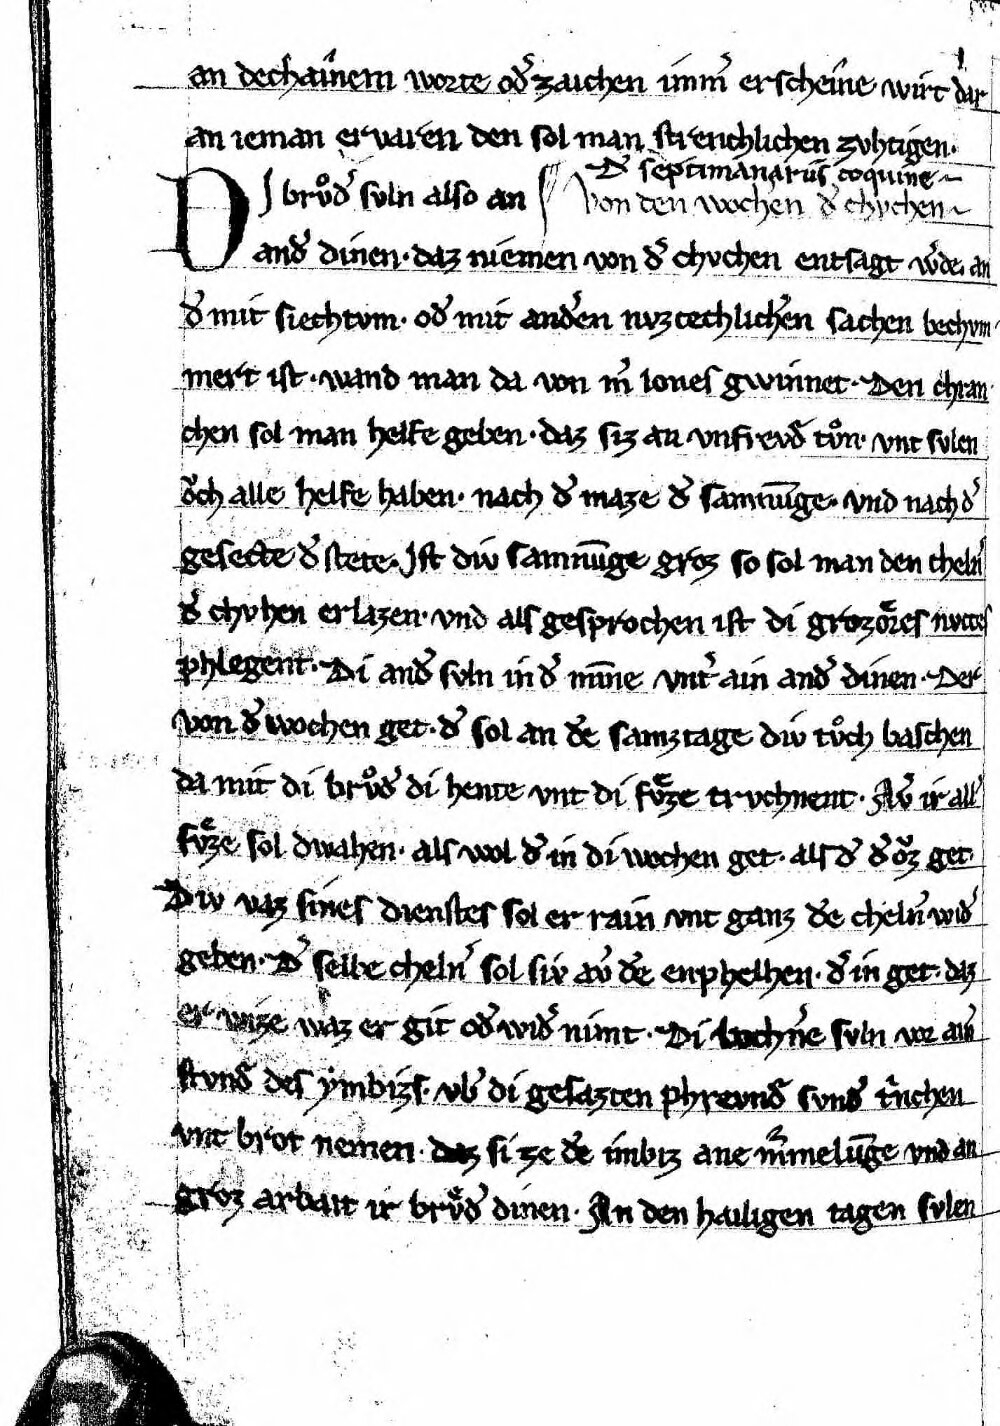 an dechainem worte od͛ zaichen imm͛ erscheine wirt dar
an ieman ervaren den sol man strenchlichen zvhtigen·
D͛ septimanariis coquine
DI brvͦd͛ svln also an von den wochen d͛ chvchen
and͛ dinen· daz niemen von d͛ chvchen entsagt w͛de· an
d͛ mit siechtvm· od͛ mit and͛en nvzcechlich͛en sachen bechvm
mert ist· wand man da von m͛ lones gwinnet· Den chran
chen sol man helfe geben· daz siz an vnfrevd͛ tvͦn· vnt svlen
oͮch alle helfe haben· nach d͛ maze d͛ samnūge· vnd nach d͛
gesecte d͛ stete· Ist div samnūge groz so sol man den cheln͛
d͛ chvhen erlazen· vnd als gesprochen ist di grozoͤres nvtces
phlegent· Di and͛ svln in d͛ minne vnt͛ ain and͛ dinen· Der
von d͛ wochen get· d͛ sol an dē samztage div tvͦch baschen
da mit di brvͦd͛ di hente vnt di fvͤze trvchnent· Av͛ ir all͛
fvͤze sol dwahen· als wol d͛ in di wochen get· als d͛ d͛ oͮz get·
Div vaz sines dienstes sol er rain vnt ganz dē cheln͛ wid͛
geben· D͛ selbe cheln͛ sol siv av͛ dē enphelhen· d͛ in get· daz
er wize waz er git od͛ wid͛ nimt· Di wochn͛e svln vor ain͛
stvnd͛ des ymbizs· vb͛ di gesazten phrevnd͛ svnd͛ t͛nchen
vnt brot nemen· daz si ze dē imbiz ane m͛melūge vnd an
groz arbait ir brvͤd͛ dinen· An den hailigen tagen svlen